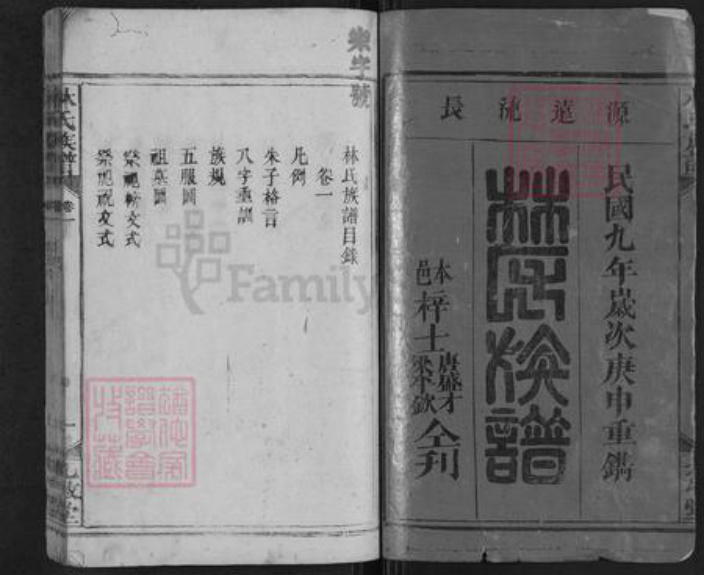 源遠流長
民國九年歲次庚申重鐫
林氏族譜
本邑梓士唐盛才梁本欽仝刊
樂字號
林氏族譜目錄
卷一
凡例
朱子格言
八字垂訓
族規
五服圖
祖墓圖
祭祀輓文式
祭祀祝文式
林氏族譜
卷一
一
Family